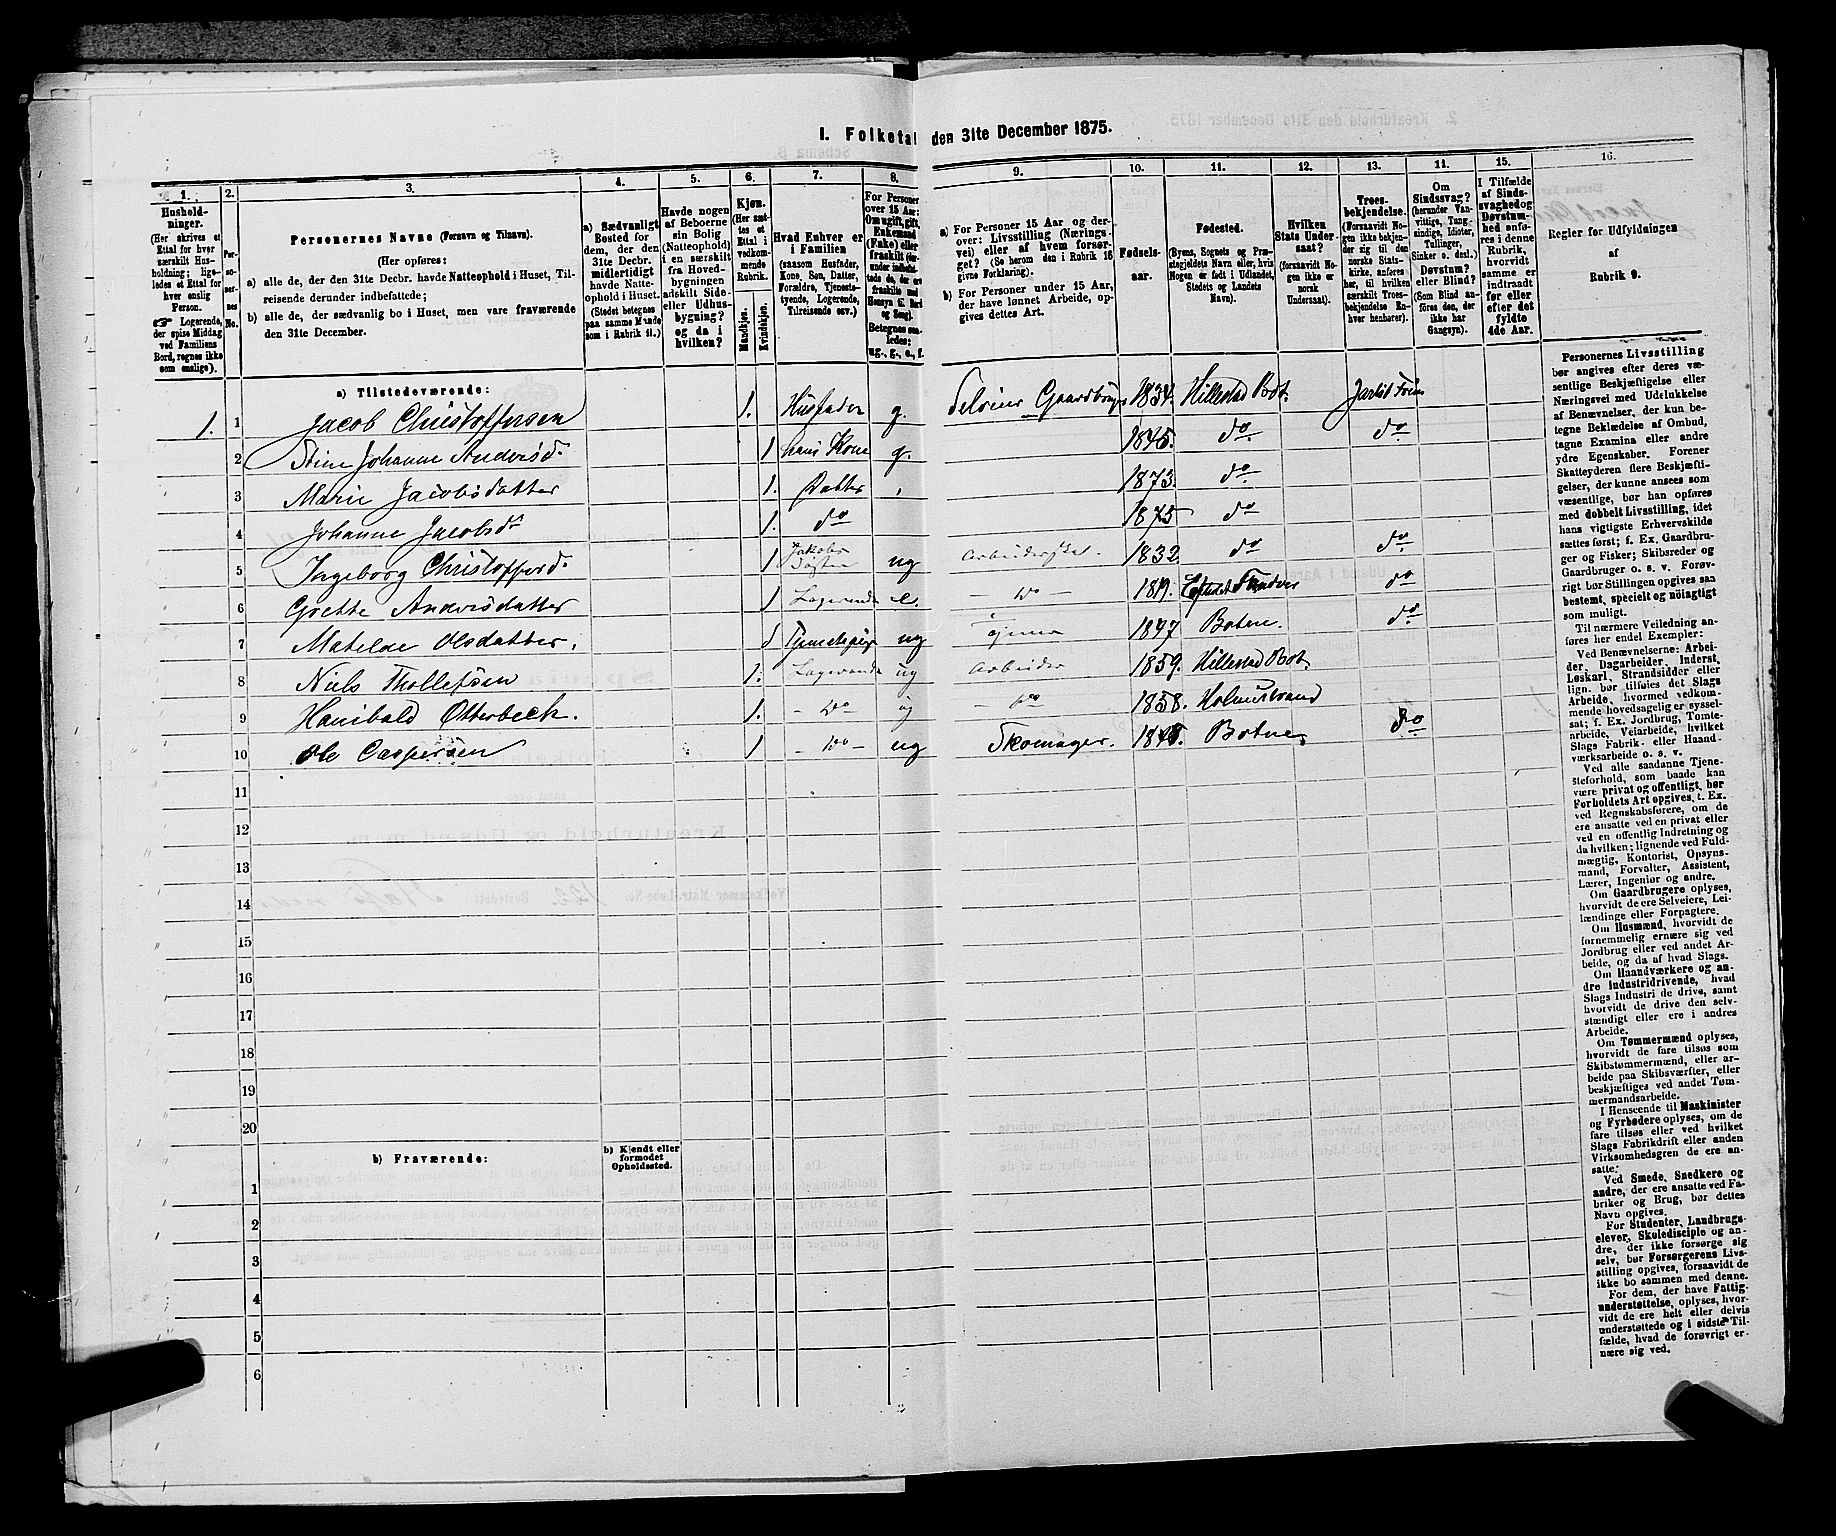 I. Folketal den 31te December 1875.
1. 2. 3. 4. 5. 6. 7. 8. 9. 10. 11. 12. 13. 14. 15. 16.
Hushold-
ninger.
(Her skrives et
Ettal for hver
særskilt Hus-
holdning; lige-
ledes et Ettal for
hver enslig
Person.
☞ Logerende,
der spise Middag
ved Familiens
Bord, regnes ikke
som enslige).
Per-
soner-
nes
No.
Personernes Navne (Fornavn og Tilnavn).
(Her opføres:
a) alle de, der den 31te Decbr. havde Natteophold i Huset, Til-
reisende derunder indbefattede;
b) alle de, der sædvanlig bo i Huset, men vare fraværende
den 31te December.
a) Sædvanligt
Bosted for
dem, der den
31te Decbr.
midlertidigt
havde Natte-
ophold i Huset.
(Stedet betegnes
paa samme Maade
som i Rubrik 11.)
Havde nogen
af Beboerne
sin Bolig
(Natteophold)
i en særskilt
fra Hoved-
bygningen
adskilt Side-
eller Udhus-
bygning?
og da i
hvilken?
Kjøn.
(Her sæt-
tes et
Ettal i
vedkom-
mende
Rubrik.
Mandkjøn.
Kvindekjøn.
Hvad Enhver er
i Familien
(saasom Husfader,
Kone, Søn, Datter,
Forældre, Tjeneste-
tyende, Logerende,
Tilreisende osv.)
For Personer
over 15 Aar:
Om ugift, gift,
Enkemand
(Enke) eller
fraskilt
Betegnes saa-
ledes:
ug., g., e., f.
a) For Personer 15 Aar og der-
over: Livsstilling (Nærings-
vei) eller af hvem forsør-
get? (Se herom den i Rubrik 16
givne Forklaring).
b) For Personer under 15 Aar,
der have lønnet Arbeide, op-
gives dettes Art.
Fødsels-
aar.
Fødested.
(Byens, Sognets og Præ-
stegjeldets Navn eller, hvis
Nogen er født i Udlandet,
Stedets og Landets
Navn).
Hvilken
Stats Under-
saat?
(forsaavidt No-
gen ikke er
norsk
Undersaat).
Troes-
bekjendelse.
(Forsaavidt No-
gen ikke bekjen-
der sig til den
norske Stats-
kirke, anføres
her, til hvilken
særskilt Troes-
bekjendelse En-
hver henhører).
Om
Sindssvag?
(herunder Van-
vittige, Tung-
sindige, Idioter,
Tullinger,
Sinker o. desl.)
Døvstum?
eller Blind?
(Som Blind an-
føres den, der
ikke har
Gangsyn).
I Tilfælde
af Sinds-
svaghed og
Døvstum-
hed anfø-
res i denne
Rubrik,
hvorvidt
samme er
indtraadt
før eller
efter det
fyldte
4de Aar.
Regler for Udfyldningen
af
Rubrik 9.
a) Tilstedeværende:
1. 1 Jacob Christoffersen 1. Husfader g. Selveier Gaardbruger 1834. Hillestad Bot.
2 Stine Johanne Andersd. 1 hans Kone g. 1845. do do
3 Marie Jacobsdatter 1. Datter 1873. do
4 Johanne Jacobsd. 1. do 1875 do
5 Ingeborg Christofferd. 1 Jakobs Søster ug 1832. do do
6 Grethe Andersdatter 1 Logerende e. - do - do
7 Matilde Olsdatter. 1 ug 1847 Botne. do
8 Niels Thollefsen 1. Logerende ug Arbeider 1859. Hillestad Bot.
9 Hanibald Otterbeck. 1. - do - ug - do 1858. Holmestrand
10 Ole Caspersen 1 - do - ug Skomager. Botne do
11
12
13
14
15
16
17
18
19
20
b) Fraværende:
b) Kjendt eller
formodet
Opholdssted.
1
2
3
4
5
6
Personernes Livsstilling
bør angives efter deres væ-
sentlige Beskjæftigelse eller
Næringsvei med Udelukkelse
af Benævnelser, der kun be-
tegne Beklædelse af Ombud,
tagne Examina eller andre
ydre Egenskaber. Forener
Skatteyderen flere Beskjæfti-
gelser, der kunne ansees som
væsentlige, bør han opføres
med dobbelt Livsstilling, idet
hans vigtigste Erhvervskilde
sættes først; f. Ex. Gaardbru-
ger og Fisker; Skibsreder og
Gaardbruger o. s. v. Forøv-
rigt bør Stillingen opgives saa
bestemt, specielt og nøiagtigt
som muligt.
Til nærmere Veiledning an-
føres her endel Exempler:
Ved Benævnelserne: Arbei-
der, Dagarbeider, Inderst,
Løskarl, Strandsidder eller
lign. bør tilføies det Slags
Arbeide, hvormed vedkom-
mende hovedsagelig er syssel-
sat; f. Ex. Jordbrug, Tomte-
arbeide, Veiarbeide, hvilket
Slags Fabrik- eller Haand-
værksarbeide o. s. v.
Ved alle saadanne Tjene-
steforhold, som baade kan
være privat og offentligt, bør
Forholdets Art opgives, t. Ex.
ved Regnskabsførere, om de
ere ansatte ved en privat eller
ved en offentlig Indretning og
da hvilken; lignende ved Fuld-
mægtig, Kontorist, Opsyns-
mand, Forvalter, Assistent,
Lærer, Ingeniør og andre.
Om Gaardbrugere oplyses,
hvorvidt de ere Selveiere, Lei-
lændinge eller Forpagtere.
Om Husmænd, hvorvidt de
fornemmelig ernære sig ved
Jordbrug eller ved andet Ar-
beide, og da af hvad Slags.
Om Haandværkere og an-
dre Industridrivende, hvad
Slags Industri de drive, samt
hvorvidt de drive den selv-
stændigt eller ere i andres
Arbeide.
Om Tømmermænd oplyses,
hvorvidt de fare tilsøs som
Skibstømmermænd, eller ar-
beide paa Skibsværfter, eller
beskjæftiges ved andet Tøm-
mermandsarbeide.
I Henseende til Maskinister
og Fyrbødere oplyses, om de
fare tilsøs eller ved hvilket
Slags Fabrikdrift eller anden
Virksomhedsgren de ere an-
satte.
Ved Smede, Snedkere og
andre, der ere ansatte ved Fa-
briker og Brug, bør dettes
Navn opgives.
For Studenter, Landbrugs-
elever, Skoledisciple og an-
dre, der ikke forsørge sig
selv, bør Forsørgerens Livs-
stilling opgives, forsaavidt de
ikke bo sammen med denne.
For dem, der have Fattig-
understøttelse, oplyses, hvor-
vidt de ere helt eller delvis
understøttede og i sidste Til-
fælde, hvad de forøvrigt er-
nære sig ved.